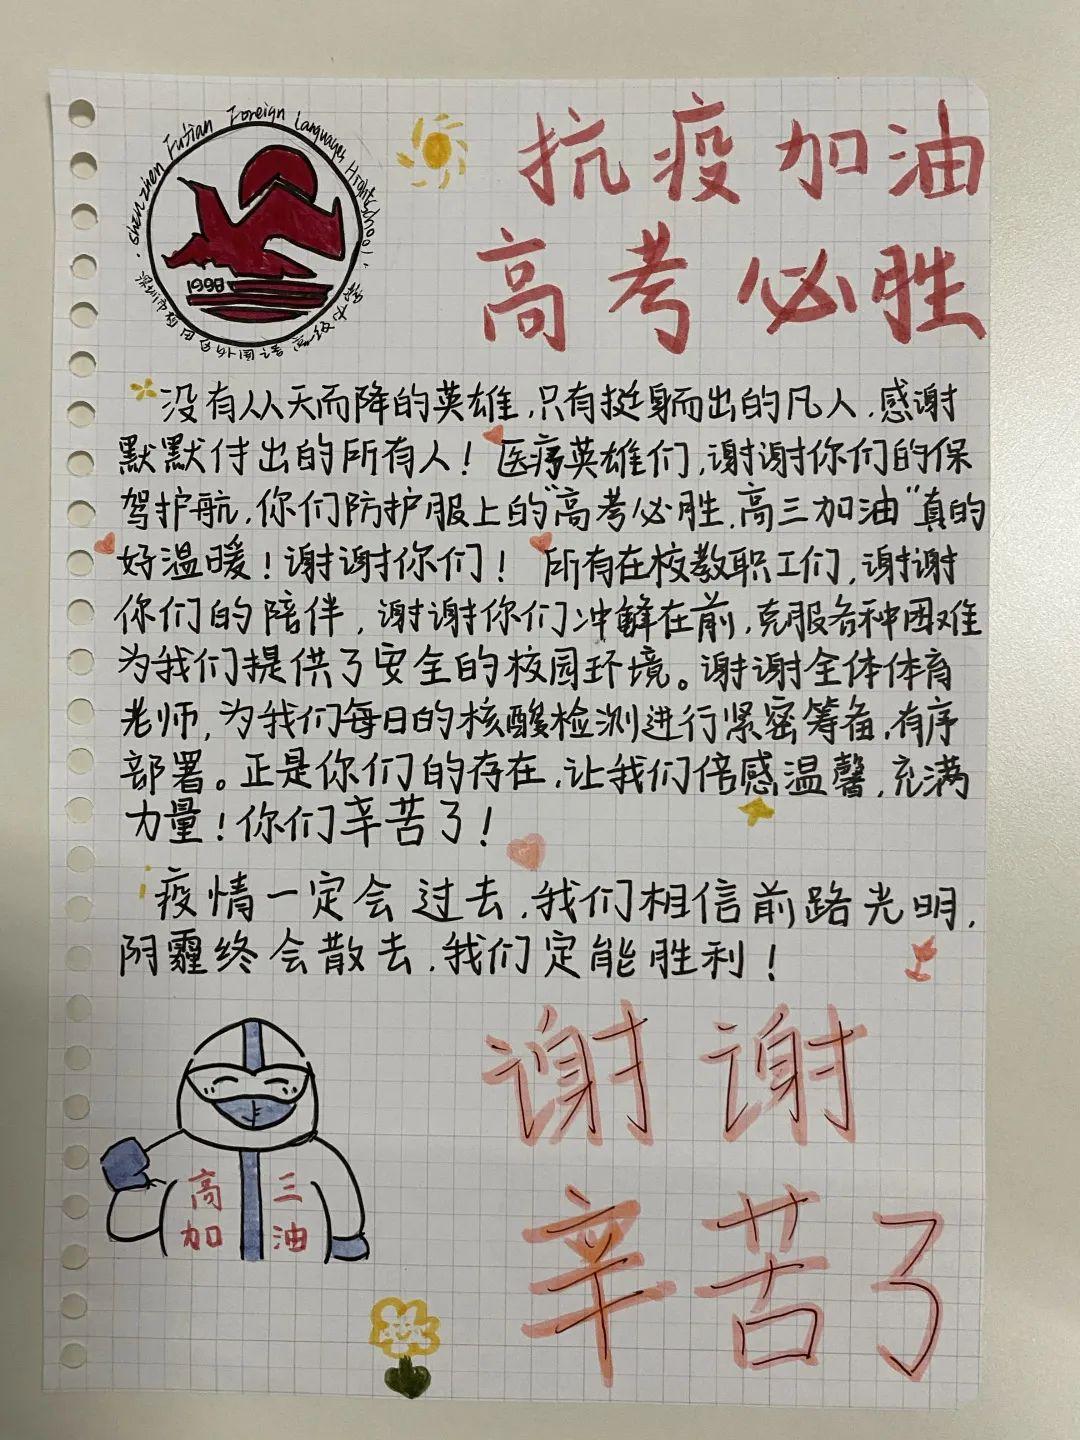 Shen zhen Futian Foreign Languages High School
1998
抗疫加油
高考必胜
没有从天而降的英雄,只有挺身而出的凡人,感谢
默默付出的所有人!医疗英雄们,谢谢你们的保
驾护航,你们防护服上的“高考必胜,高三加油”真的
好温暖!谢谢你们! 所有在校教职工们,谢谢
你们的陪伴,谢谢你们冲锋在前,克服各种困难
为我们提供了安全的校园环境。谢谢全体体育
老师,为我们每日的核酸检测进行紧密筹备,有序
部署。正是你们的存在,让我们倍感温馨,充满
力量!你们辛苦了!
疫情一定会过去,我们相信前路光明,
阴霾终会散去,我们定能胜利!
谢谢
辛苦了
高三
加油